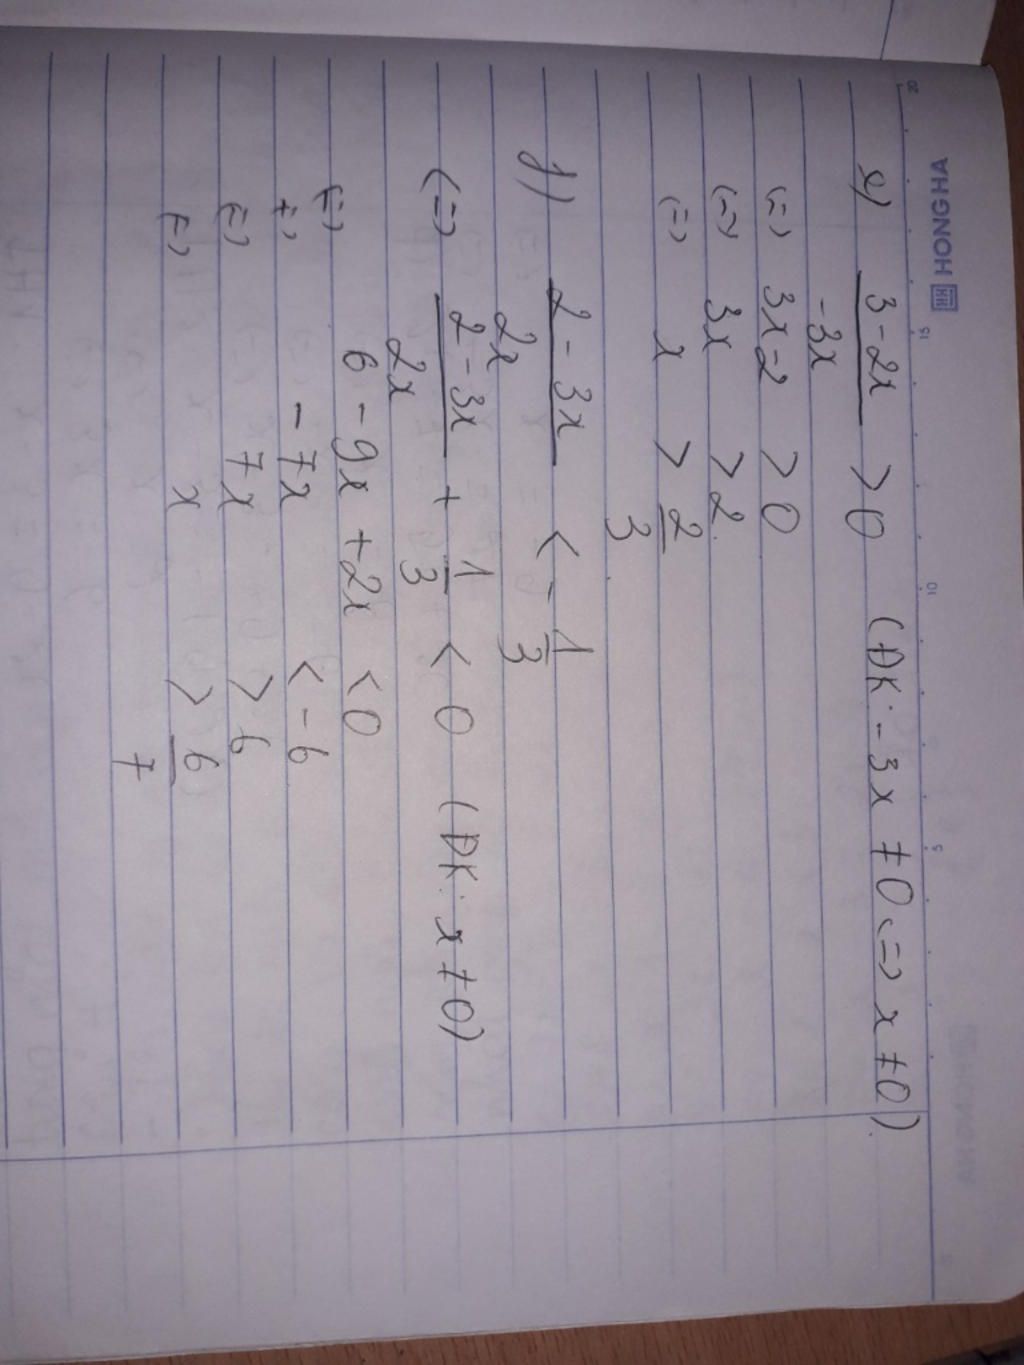 HONG HA
20 15 10 5
e) \frac{3-2x}{-3x} > 0 (ĐK: -3x ≠ 0 <=> x ≠ 0).
<=> 3x-2 > 0
<=> 3x > 2.
<=> x > \frac{2}{3}.
f) \frac{2-3x}{2x} < -\frac{1}{3}
<=> \frac{2-3x}{2x} + \frac{1}{3} < 0 (ĐK: x ≠ 0)
<=> 6-9x+2x < 0
<=> -7x < -6
<=> 7x > 6
<=> x > \frac{6}{7}